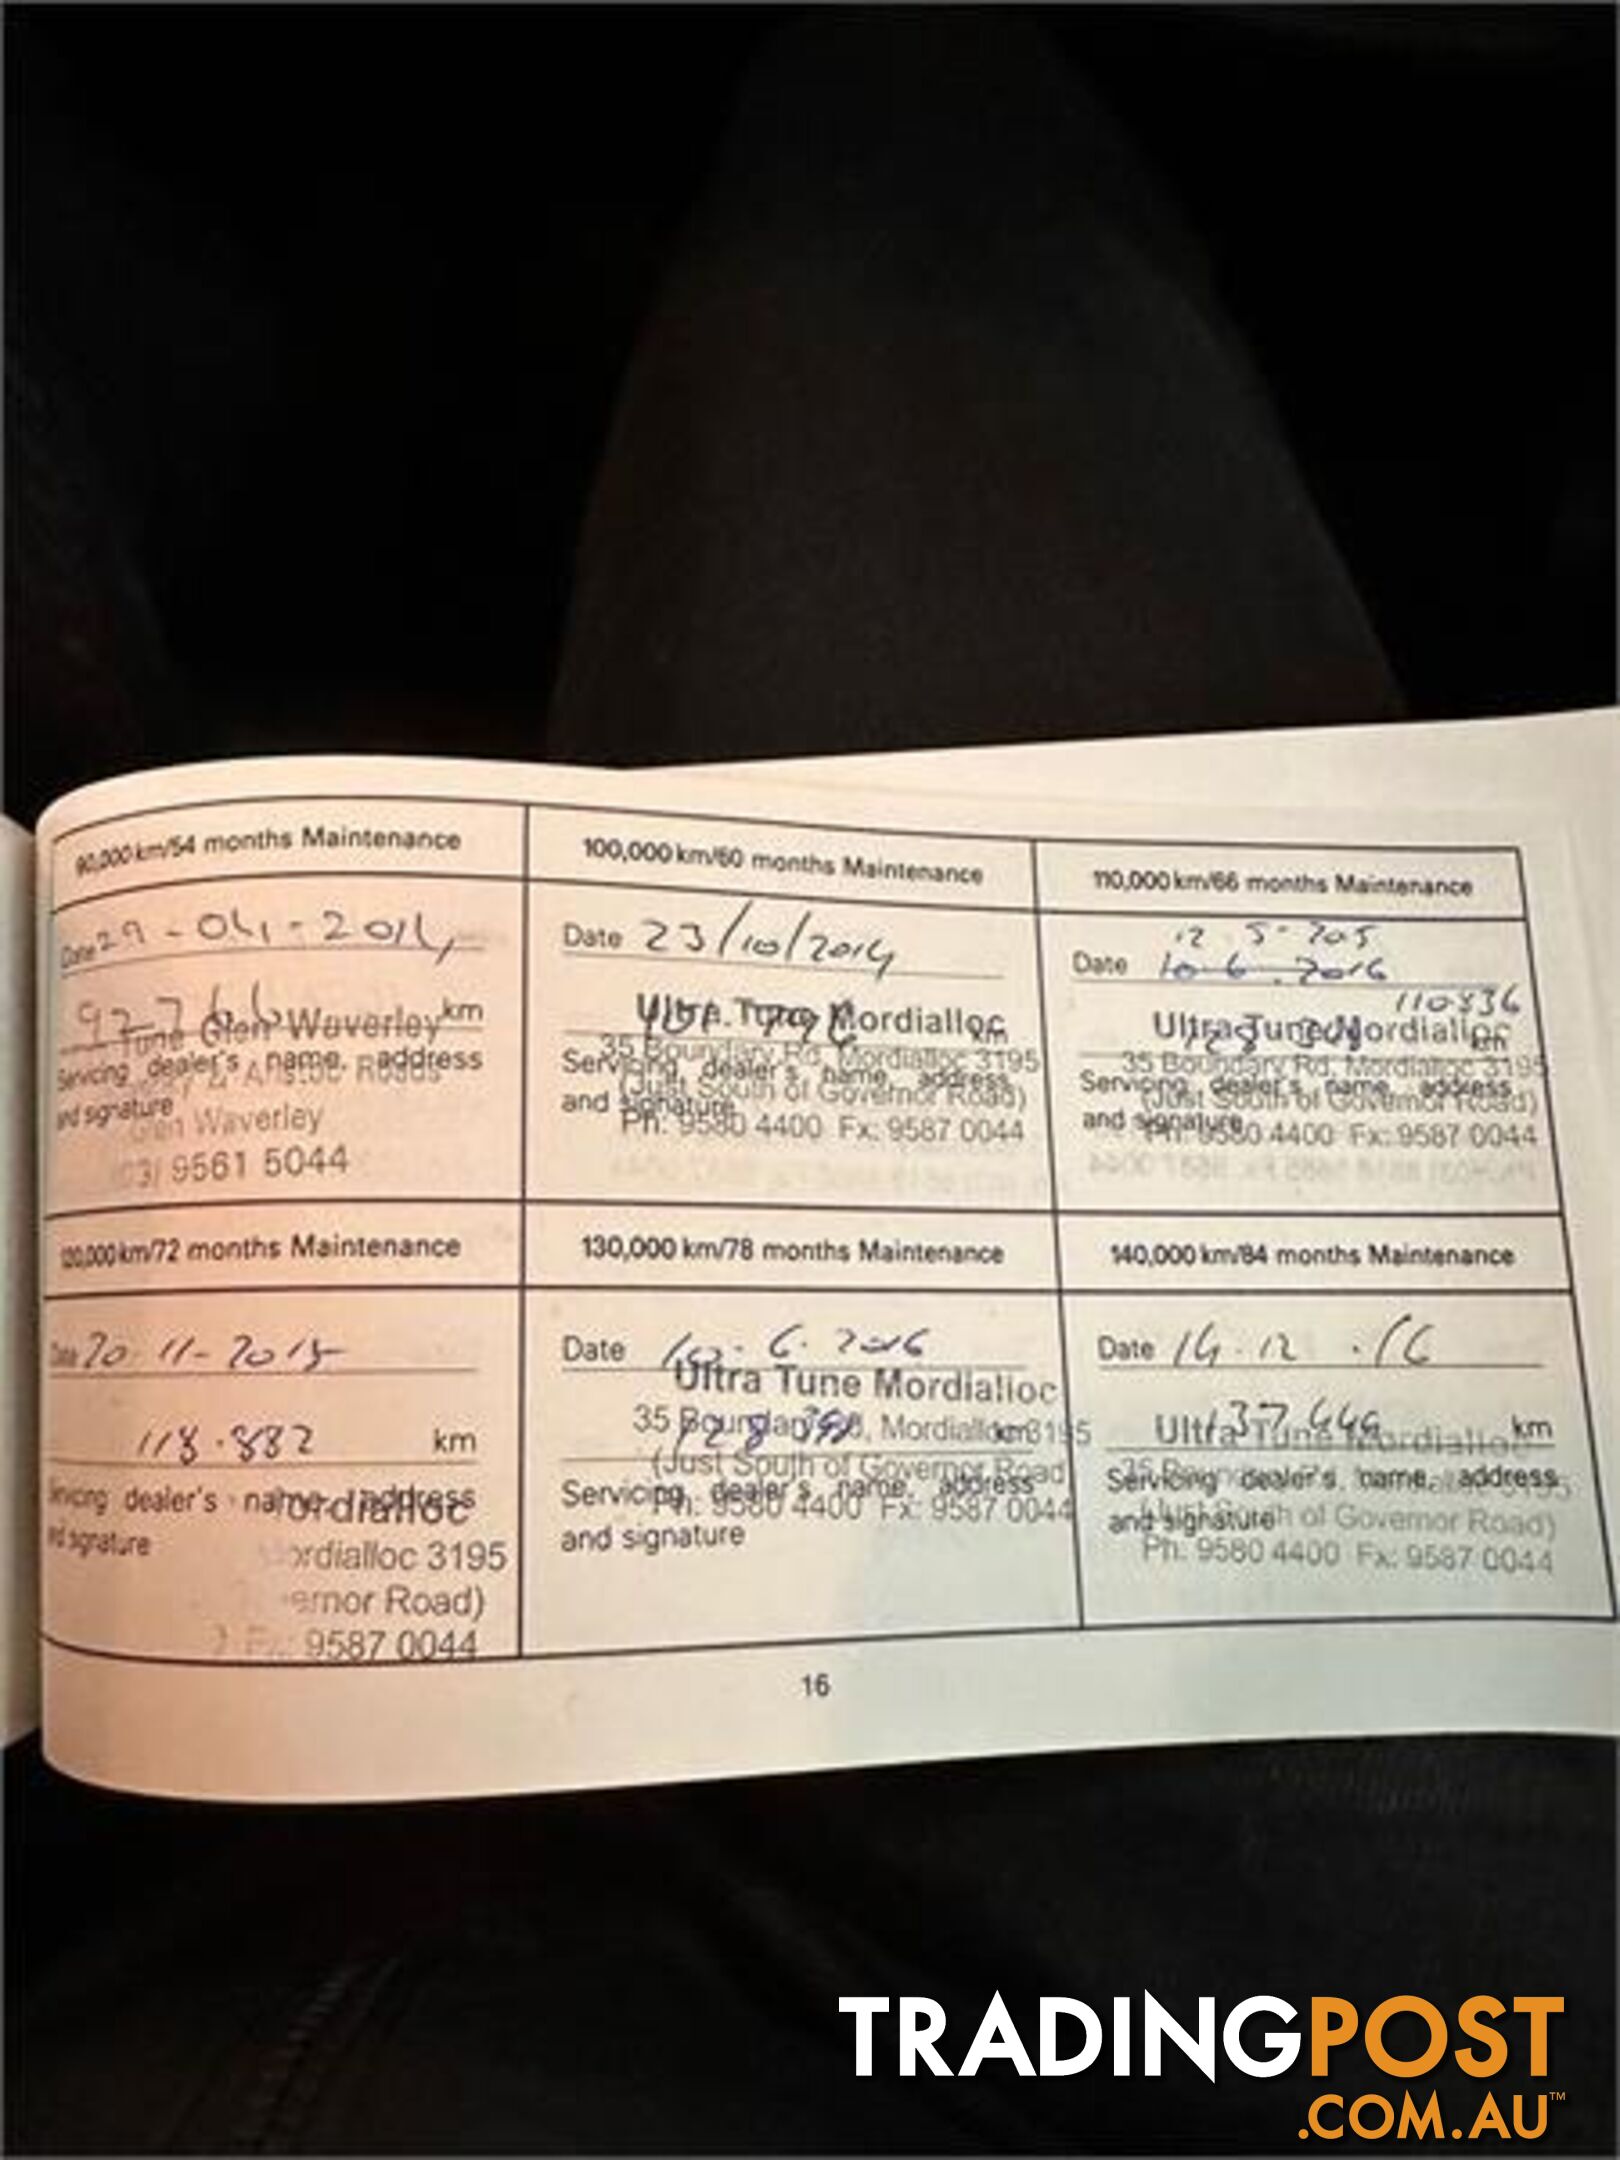 90,000 km/54 months Maintenance
Date 29-04-2014
97766 km
Tune Glen Waverley
Servicing dealer's name, address
and signature
Glen Waverley
(03) 9561 5044
100,000 km/60 months Maintenance
Date 23/10/2014
km
Ultra Tune Mordialloc
35 Boundary Rd, Mordialloc 3195
Servicing dealer's name, address
(Just South of Governor Road)
and signature
Ph: 9580 4400 Fx: 9587 0044
110,000 km/66 months Maintenance
12 5- 205
Date 10 6 . 2016
110836
Ultra Tune Mordialloc
km
35 Boundary Rd, Mordialloc 3195
Servicing dealer's name, address
(Just South of Governor Road)
and signature
Ph: 9580 4400 Fx: 9587 0044
120,000 km/72 months Maintenance
Date 20-11-2015
118.882 km
Servicing dealer's name, address
Mordialloc
and signature
Mordialloc 3195
ernor Road)
9587 0044
130,000 km/78 months Maintenance
Date 10. 6. 2016
Ultra Tune Mordialloc
35 Boundary Rd, Mordialloc 3195
km
(Just South of Governor Road
Servicing dealer's name, address
Ph: 9580 4400 Fx: 9587 0044
and signature
140,000 km/84 months Maintenance
Date 14.12 .16
137449 km
Ultra Tune Mordialloc
Servicing dealer's name, address
(Just South of Governor Road)
and signature
Ph: 9580 4400 Fx: 9587 0044
16
TRADINGPOST
.COM.AU™